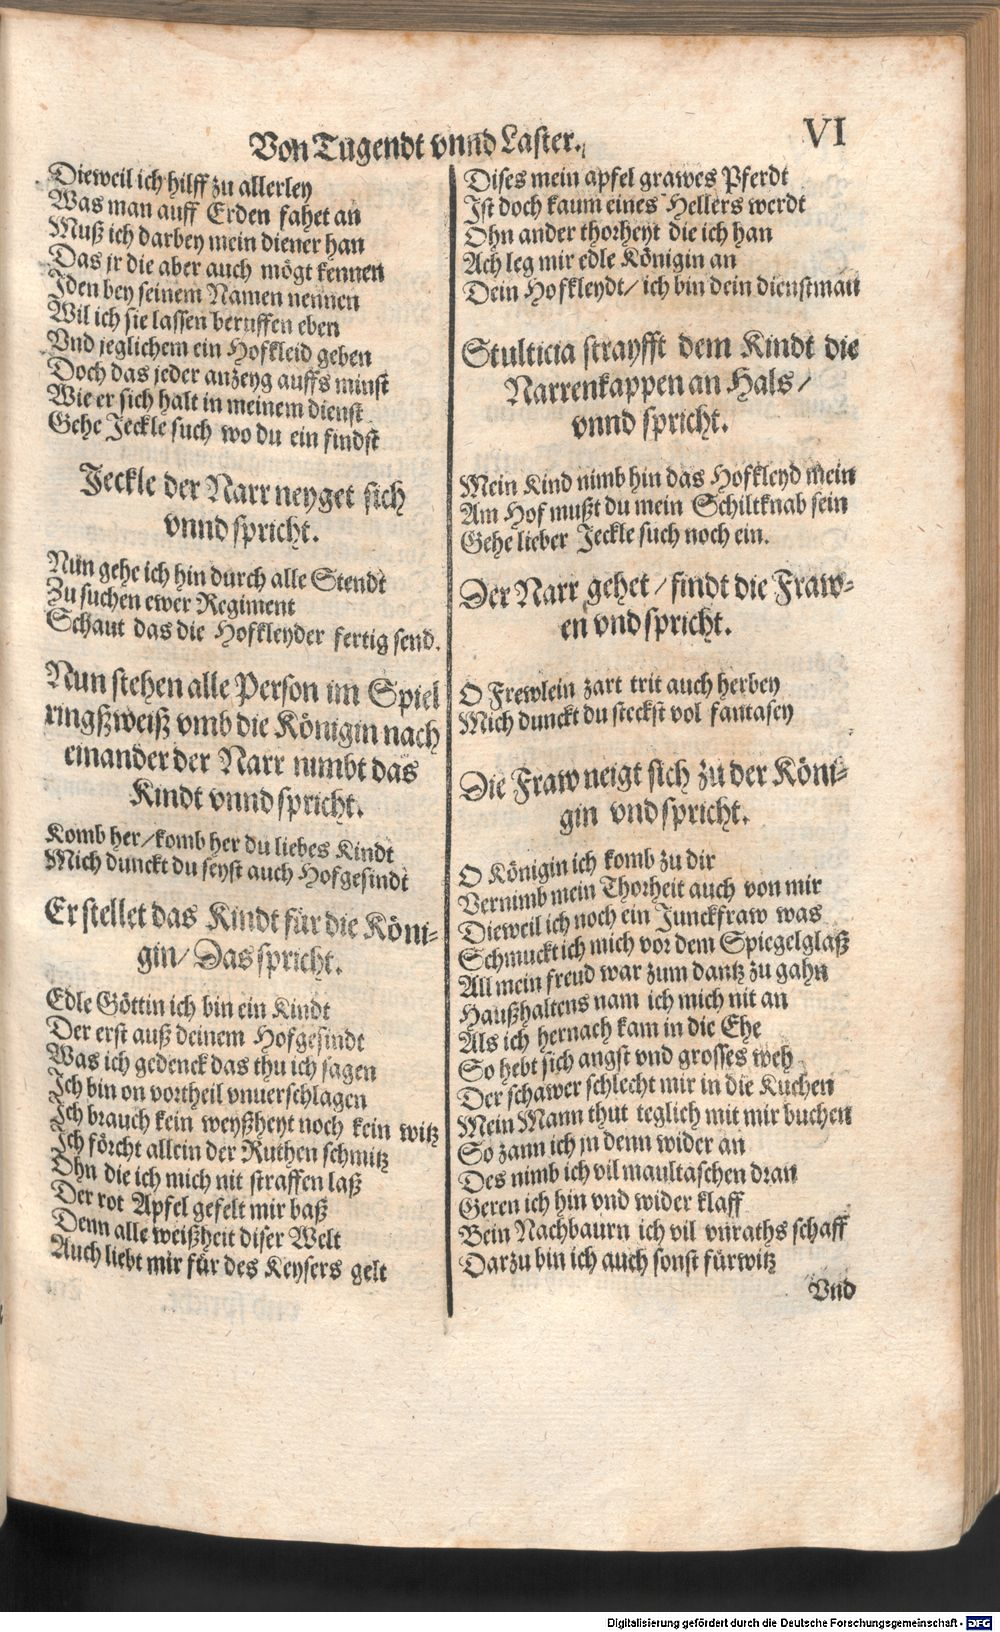 Von Tugendt vnnd Laster.
VI
Dieweil ich hilff zu allerley
Was man auff Erden fahet an
Muß ich darbey mein diener han
Das jr die aber auch mögt kennen
Jden bey seinem Namen nennen
Wil ich sie lassen beruffen eben
Vnd jeglichem ein Hofkleid geben
Doch das jeder anzeyg auffs minst
Wie er sich halt in meinem dienst
Gehe Jeckle such wo du ein findst
Jeckle der Narr neyget sich
vnnd spricht.
Nun gehe ich hin durch alle Stendt
Zu suchen ewer Regiment
Schaut das die Hofkleyder fertig send.
Nun stehen alle Person im Spiel
ringßweiß vmb die Königin nach
einander der Narr nimbt das
Kindt vnnd spricht.
Komb her/komb her du liebes Kindt
Mich dunckt du seyst auch Hofgesindt
Er stellet das Kindt für die Köni-
gin/ Das spricht.
Edle Göttin ich bin ein Kindt
Der erst auß deinem Hofgesindt
Was ich gedenck das thu ich sagen
Ich bin on vortheil vnuerschlagen
Ich brauch kein weyßheyt noch kein witz
Ich förcht allein der Ruthen schmitz
Ohn die ich mich nit straffen laß
Der rot Apfel gefelt mir baß
Denn alle weißheit diser Welt
Auch liebt mir für des Keysers gelt
Dises mein apfel grawes Pferdt
Ist doch kaum eines Hellers werdt
Ohn ander thorheyt die ich han
Ach leg mir edle Königin an
Dein Hofkleydt/ ich bin dein dienstman
Stulticia strayfft dem Kindt die
Narrenkappen an Hals/
vnnd spricht.
Mein Kind nimb hin das Hofkleyd mein
Am Hof mußt du mein Schiltknab sein
Gehe lieber Jeckle such noch ein.
Der Narr gehet/ findt die Fraw-
en vnd spricht.
O Frewlein zart trit auch herbey
Mich dunckt du steckst vol fantasey
Die Fraw neigt sich zu der Köni-
gin vnd spricht.
O Königin ich komb zu dir
Vernimb mein Thorheit auch von mir
Dieweil ich noch ein Junckfraw was
Schmuckt ich mich vor dem Spiegelglaß
All mein freud war zum dantz zu gahn
Haußhaltens nam ich mich nit an
Als ich hernach kam in die Ehe
So hebt sich angst vnd grosses weh
Der schawer schlecht mir in die Kuchen
Mein Mann thut teglich mit mir buchen
So zann ich jn denn wider an
Des nimb ich vil maultaschen dran
Geren ich hin vnd wider klaff
Bein Nachbaurn ich vil vnraths schaff
Darzu bin ich auch sonst fürwitz
Vnd
Digitalisierung gefördert durch die Deutsche Forschungsgemeinschaft - DFG